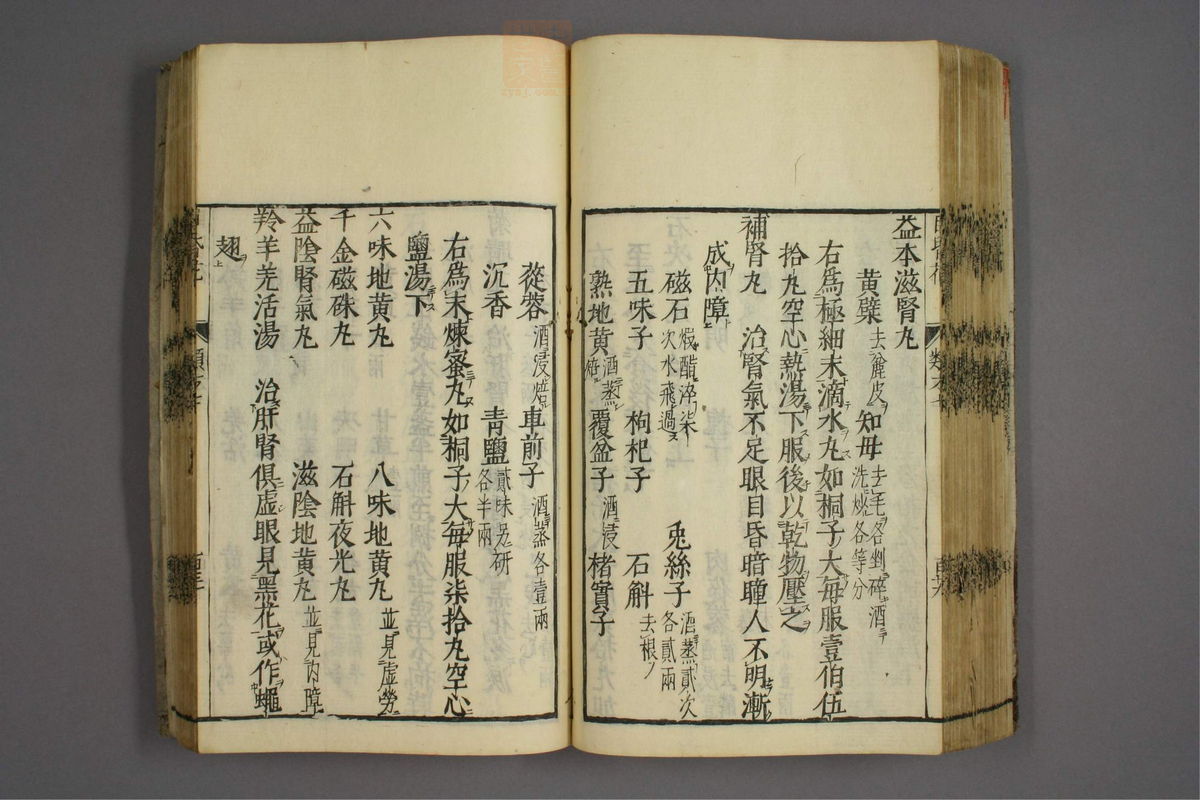 益本滋腎丸
黃檗去麁皮 知母去毛各剉碎酒洗炒各等分
右為極細末滴水丸如桐子大每服壹伯伍
拾丸空心熱湯下服後以乾物壓之
補腎丸 治腎氣不足眼目昏暗瞳人不明漸
成內障
磁石煅醋淬柒次水飛過 兔絲子酒蒸貳次各貳兩
五味子 枸杞子 石斛去根
熟地黃酒蒸焙 覆盆子酒浸 楮實子
蓯蓉酒浸焙 車前子酒蒸各壹兩
沉香 青鹽貳味另研各半兩
右為末煉蜜丸如桐子大每服柒拾丸空心
鹽湯下
六味地黃丸 八味地黃丸並見虛勞
千金磁硃丸 石斛夜光丸
益陰腎氣丸 滋陰地黃丸並見內障
羚羊羌活湯 治肝腎俱虛眼見黑花或作蠅
翅